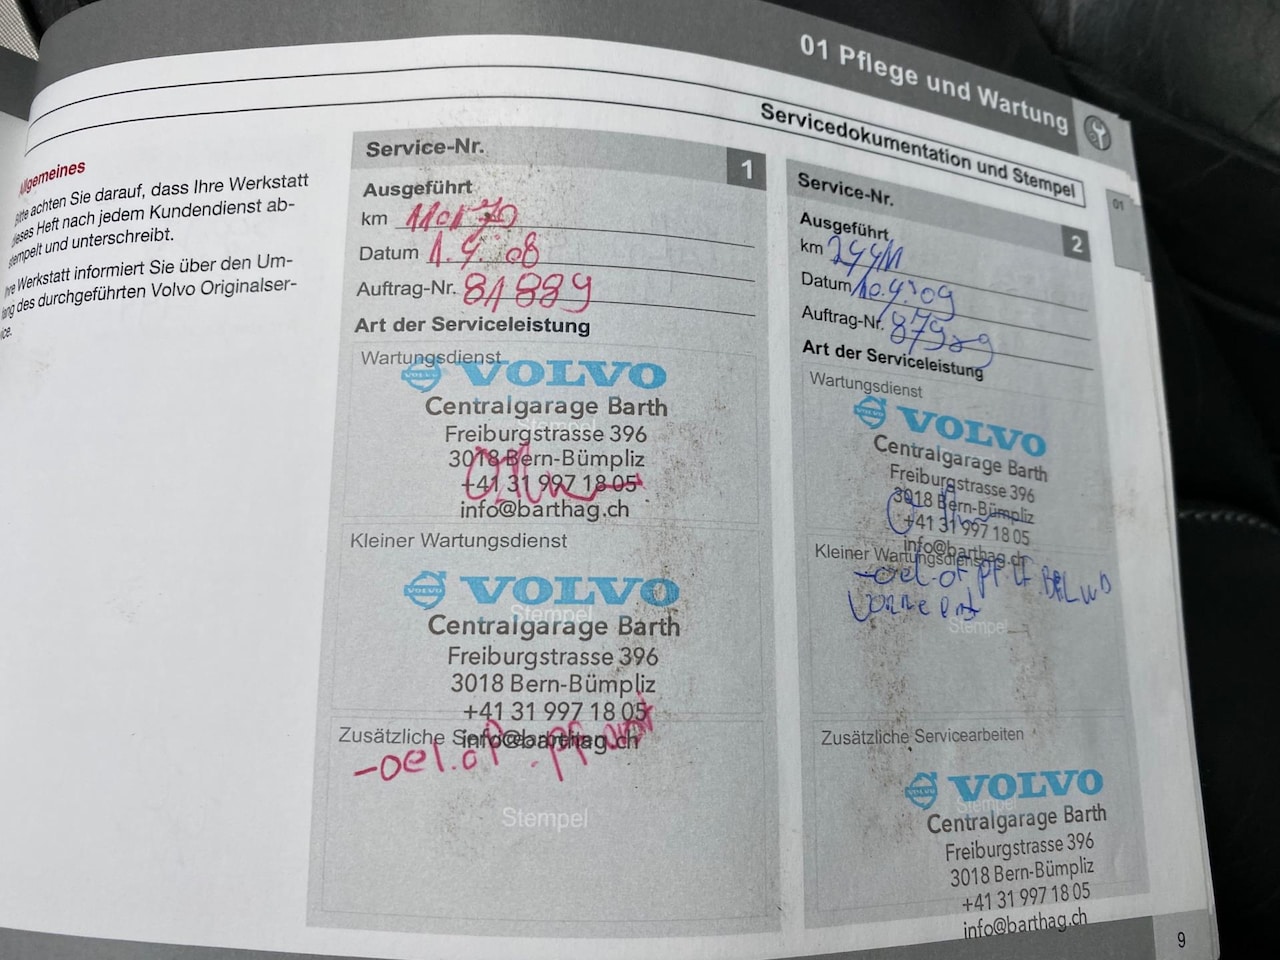 01 Pflege und Wartung
Servicedokumentation und Stempel
01
Allgemeines
Bitte achten Sie darauf, dass Ihre Werkstatt
dieses Heft nach jedem Kundendienst ab-
stempelt und unterschreibt.
Ihre Werkstatt informiert Sie über den Um-
fang des durchgeführten Volvo Originalser-
vice.
Service-Nr.
1
Ausgeführt
km
Datum 1.9.08
Auftrag-Nr. 81889
Art der Serviceleistung
Wartungsdienst
VOLVO
VOLVO
Centralgarage Barth
Stempel
Freiburgstrasse 396
3018 Bern-Bümpliz
+41 31 997 18 05
info@barthag.ch
Kleiner Wartungsdienst
VOLVO
VOLVO
Stempel
Centralgarage Barth
Freiburgstrasse 396
3018 Bern-Bümpliz
+41 31 997 18 05
Zusätzliche Servicearbeiten
info@barthag.ch
-oel.of.pf
Stempel
Service-Nr.
2
Ausgeführt
km
Datum 10.9.09
Auftrag-Nr. 87989
Art der Serviceleistung
Wartungsdienst
VOLVO
VOLVO
Centralgarage Barth
Freiburgstrasse 396
3018 Bern-Bümpliz
+41 31 997 18 05
info@barthag.ch
Kleiner Wartungsdienst
-oel.of.pf.LF.
Stempel
Zusätzliche Servicearbeiten
VOLVO
VOLVO
Stempel
Centralgarage Barth
Freiburgstrasse 396
3018 Bern-Bümpliz
+41 31 997 18 05
info@barthag.ch
9